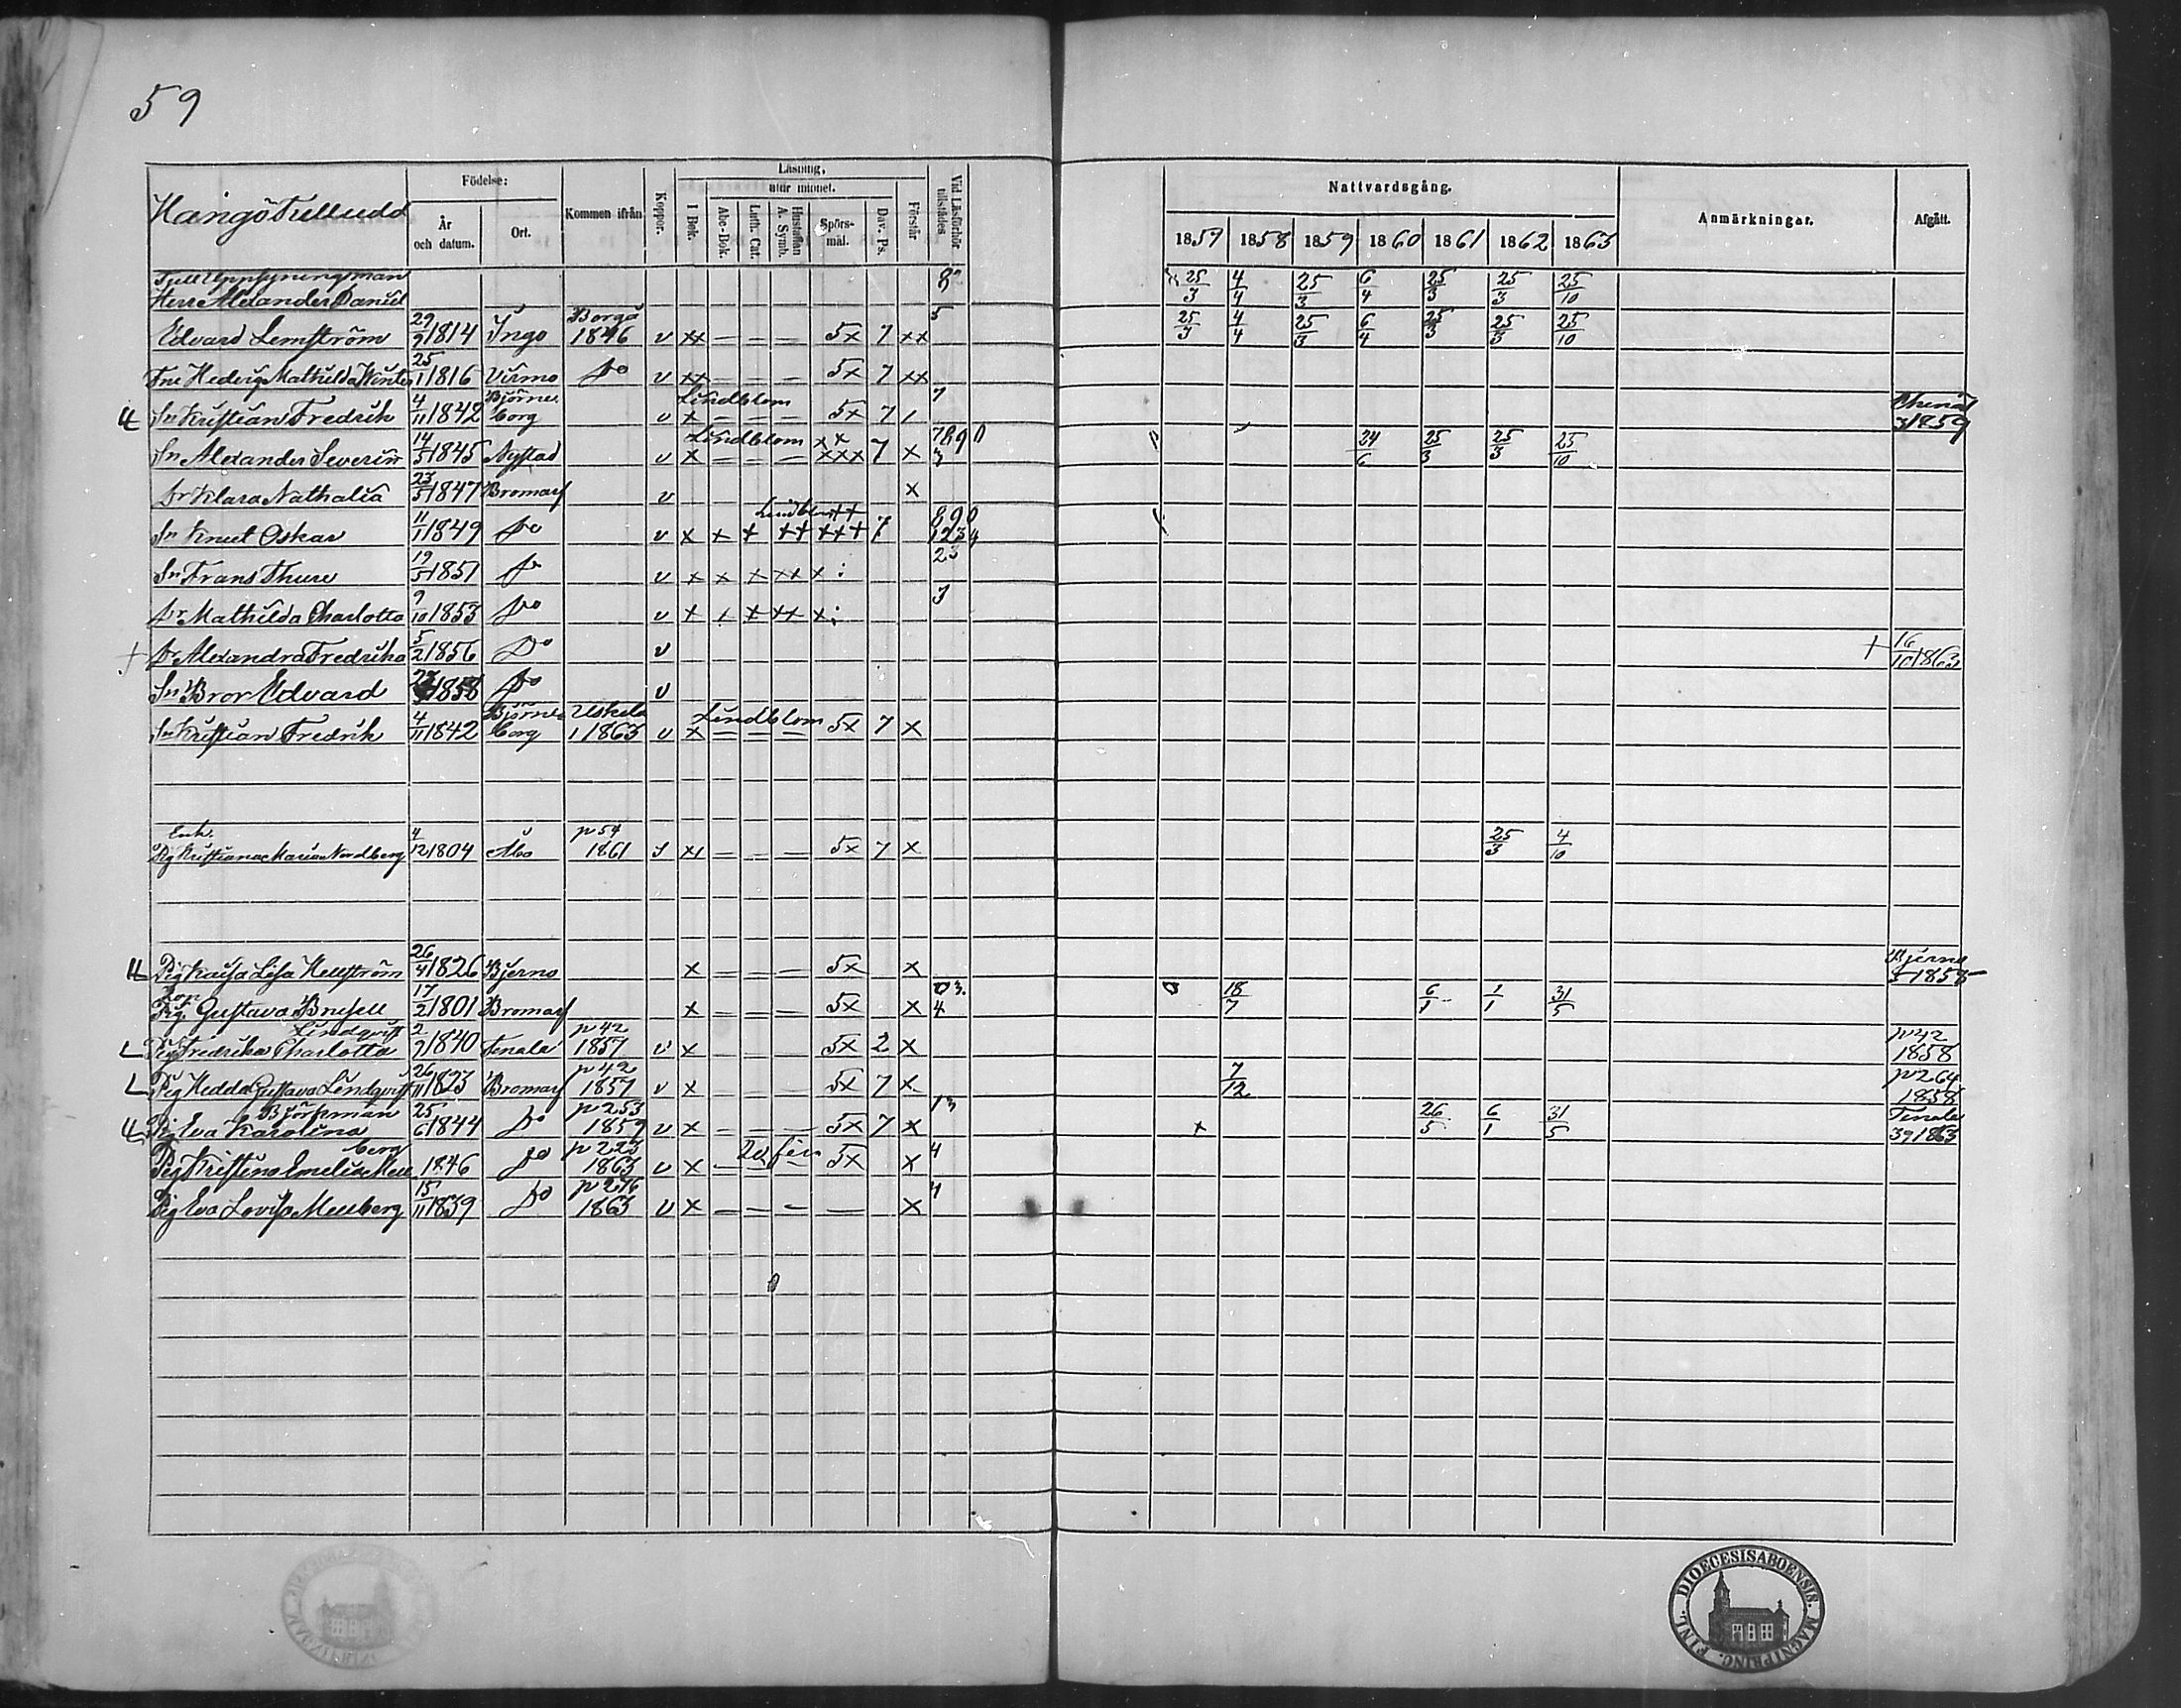 59
Hangö Tulludd
Födelse:
År och datum.
Ort.
Kommen ifrån
Koppor.
Läsning,
utur minnet.
I Bok.
Abc-Bok.
Luth. Cat.
Hustaflan A. Symb.
Spörs-mål.
Dav. Ps.
Förstår
Vid Läsförhör tillstädes
Nattvardsgång.
1857 1858 1859 1860 1861 1862 1863
Anmärkningar.
Afgått.
Tull Uppsyningsman 8
Herr Alexander Daniel 25/3 4/4 25/3 6/4 25/3 25/3 25/10
Edvard Lemström 29/9 1814 Ingo Borgå 1846 v xx — — — 5x 7 xx 5 25/3 4/4 25/3 6/4 25/3 25/3 25/10
Fru Hedvig Mathilda Winter 25/1 1816 Virmo Do v xx — — — 5x 7 xx
Sn Kristian Fredrik 4/11 1842 Björneborg v x Lindblom — — — 5x 7 / 7 1859
Sn Alexander Severin 14/5 1845 Nystad v x Lindblom — — — xx xxx 7 x 7890 3 24/6 25/3 25/3 25/10
Dr Klara Nathalia 23/5 1847 Bromarf v x
Sn Knut Oskar 11/1 1849 Do v x x x Lindblom ++ ++ +++ 7 890 1234
Sn Frans Thure 19/5 1851 Do v x x x xx x : 23
Dr Mathilda Charlotta 9/10 1853 Do v x x x xx x : 3
+ Dr Alexandra Fredrika 5/2 1856 Do v + 16/10 1863
Sn Bror Edvard 1858 Do v
Sn Kristian Fredrik 4/11 1842 Björneborg Uskela 1 1863 v x Lindblom — — — 5x 7 x
Enk.
Pig Kristiana Maria Nordberg 4/12 1804 Åbo p 54 1861 x — — — 5x 7 x 25/3 4/10
Pig Kajsa Lisa Hellström 26/4 1826 Bjerno x — — — 5x x Bjerno 1858
Pig Gustava Brusell 17/2 1801 Bromarf x — — — 5x x 03. 4 18/7 6/1 1/1 31/5
Lindqvist
Pig Fredrika Charlotta 2/9 1840 Tenala p 42 1857 v x — — — 5x 2 x p 42 1858
Pig Hedda Gustava Lindqvist 26/11 1823 Bromarf p 42 1857 v x — — — 5x 7 x 7/12 p 264 1858
Björkman
Pig Eva Karolina 25/6 1844 Do p 253 1859 v x — — — 5x 7 x 13 x 26/5 6/1 31/5 Tenala 39 1863
berg
Pig Kristina Emelia Mell 1846 Do p 223 1863 v x — — — 5x x 4
Pig Eva Lovisa Mellberg 15/11 1839 Do p 276 1863 v x — — — — x 4
DIOECESIS ABOENSIS. MAGNI PRINC. FINL.